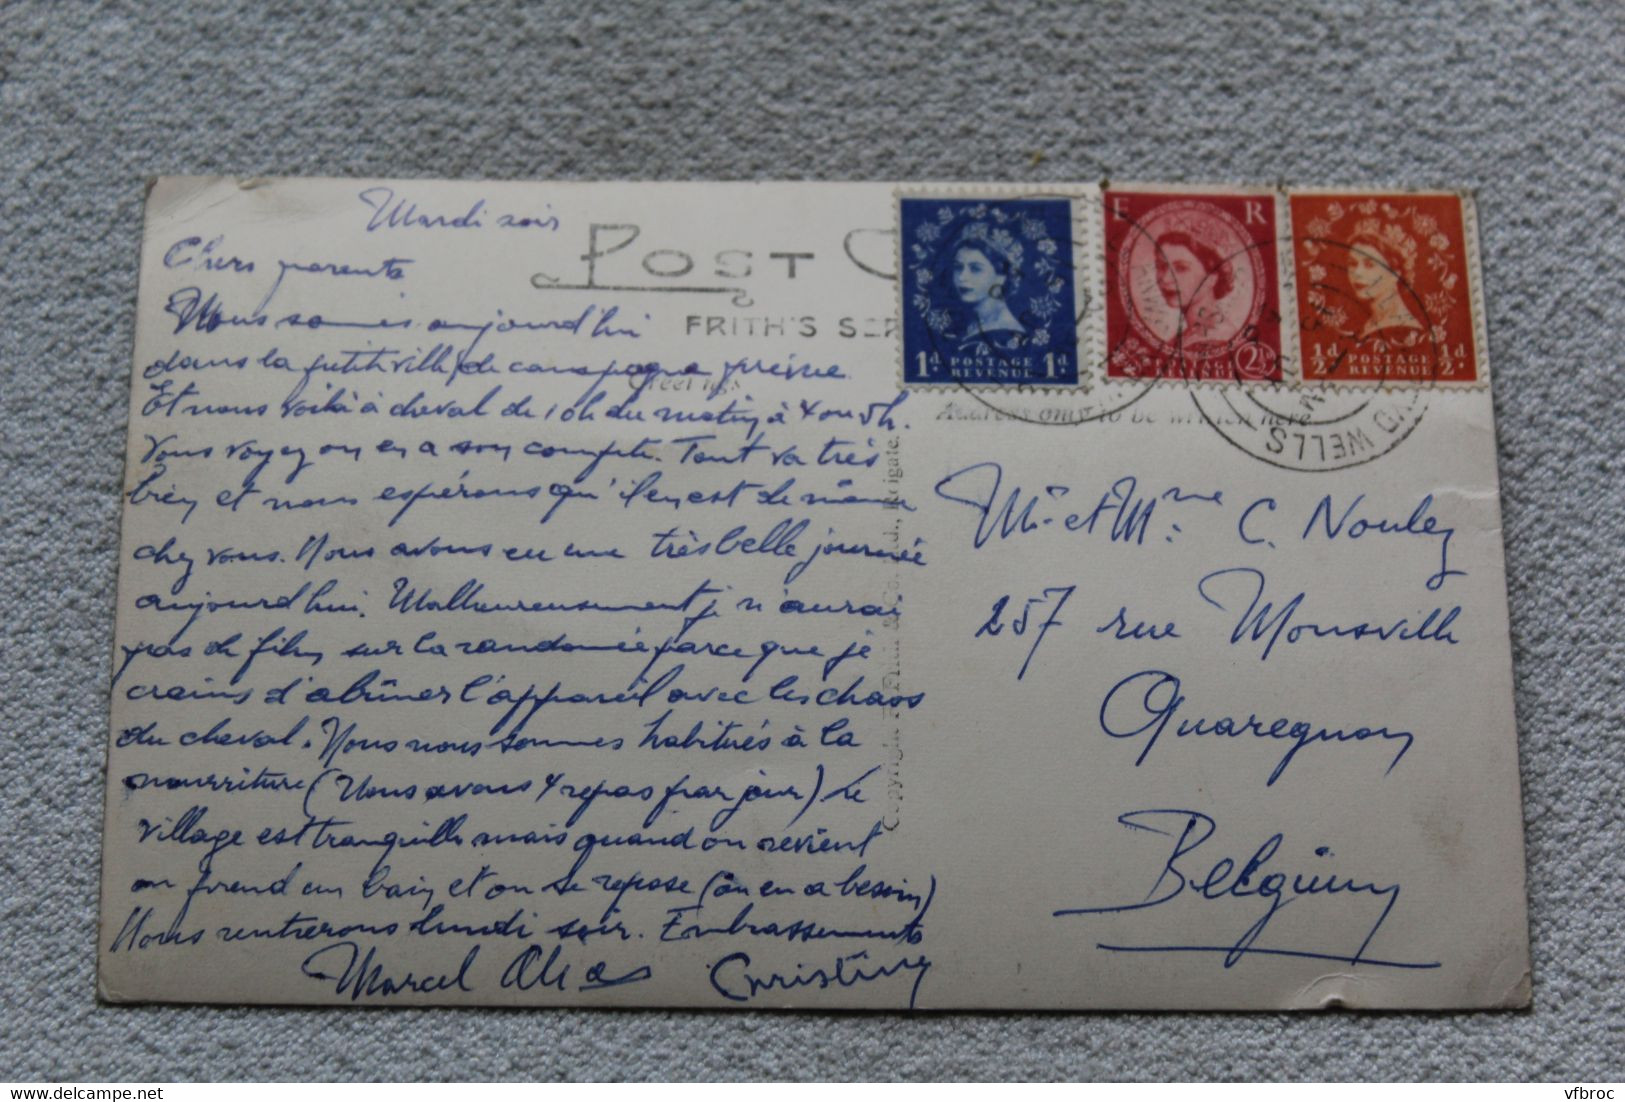 Mardi soir
Chers parents
Nous sommes aujourd'hui
dans la petite ville de campagne
Et nous voilà à cheval de 10h du matin à 4 ou 5h.
Vous voyez on en a son compte. Tout va très
bien et nous espérons qu'il en est de même
chez vous. Nous avons eu une très belle journée
aujourd'hui. Malheureusement je n'aurai
pas de film sur la randonnée parce que je
crains d'abîmer l'appareil avec les chaos
du cheval. Nous nous sommes habitués à la
nourriture (Nous avons 4 repas par jour) Le
village est tranquille mais quand on revient
on prend un bain et on se repose (on en a besoin)
Nous rentrerons lundi soir. Embrassements
Marcel Christiny
POST C
FRITH'S SER
Greetings
Address only to be written here
Copyright Frith & Co. Ltd., Reigate.
1d POSTAGE REVENUE 1d
E R
2½
½d POSTAGE REVENUE ½d
WELLS
Mr. et Mme. C. Noulez
257 rue Monsville
Quaregnon
Belgium
vfbroc